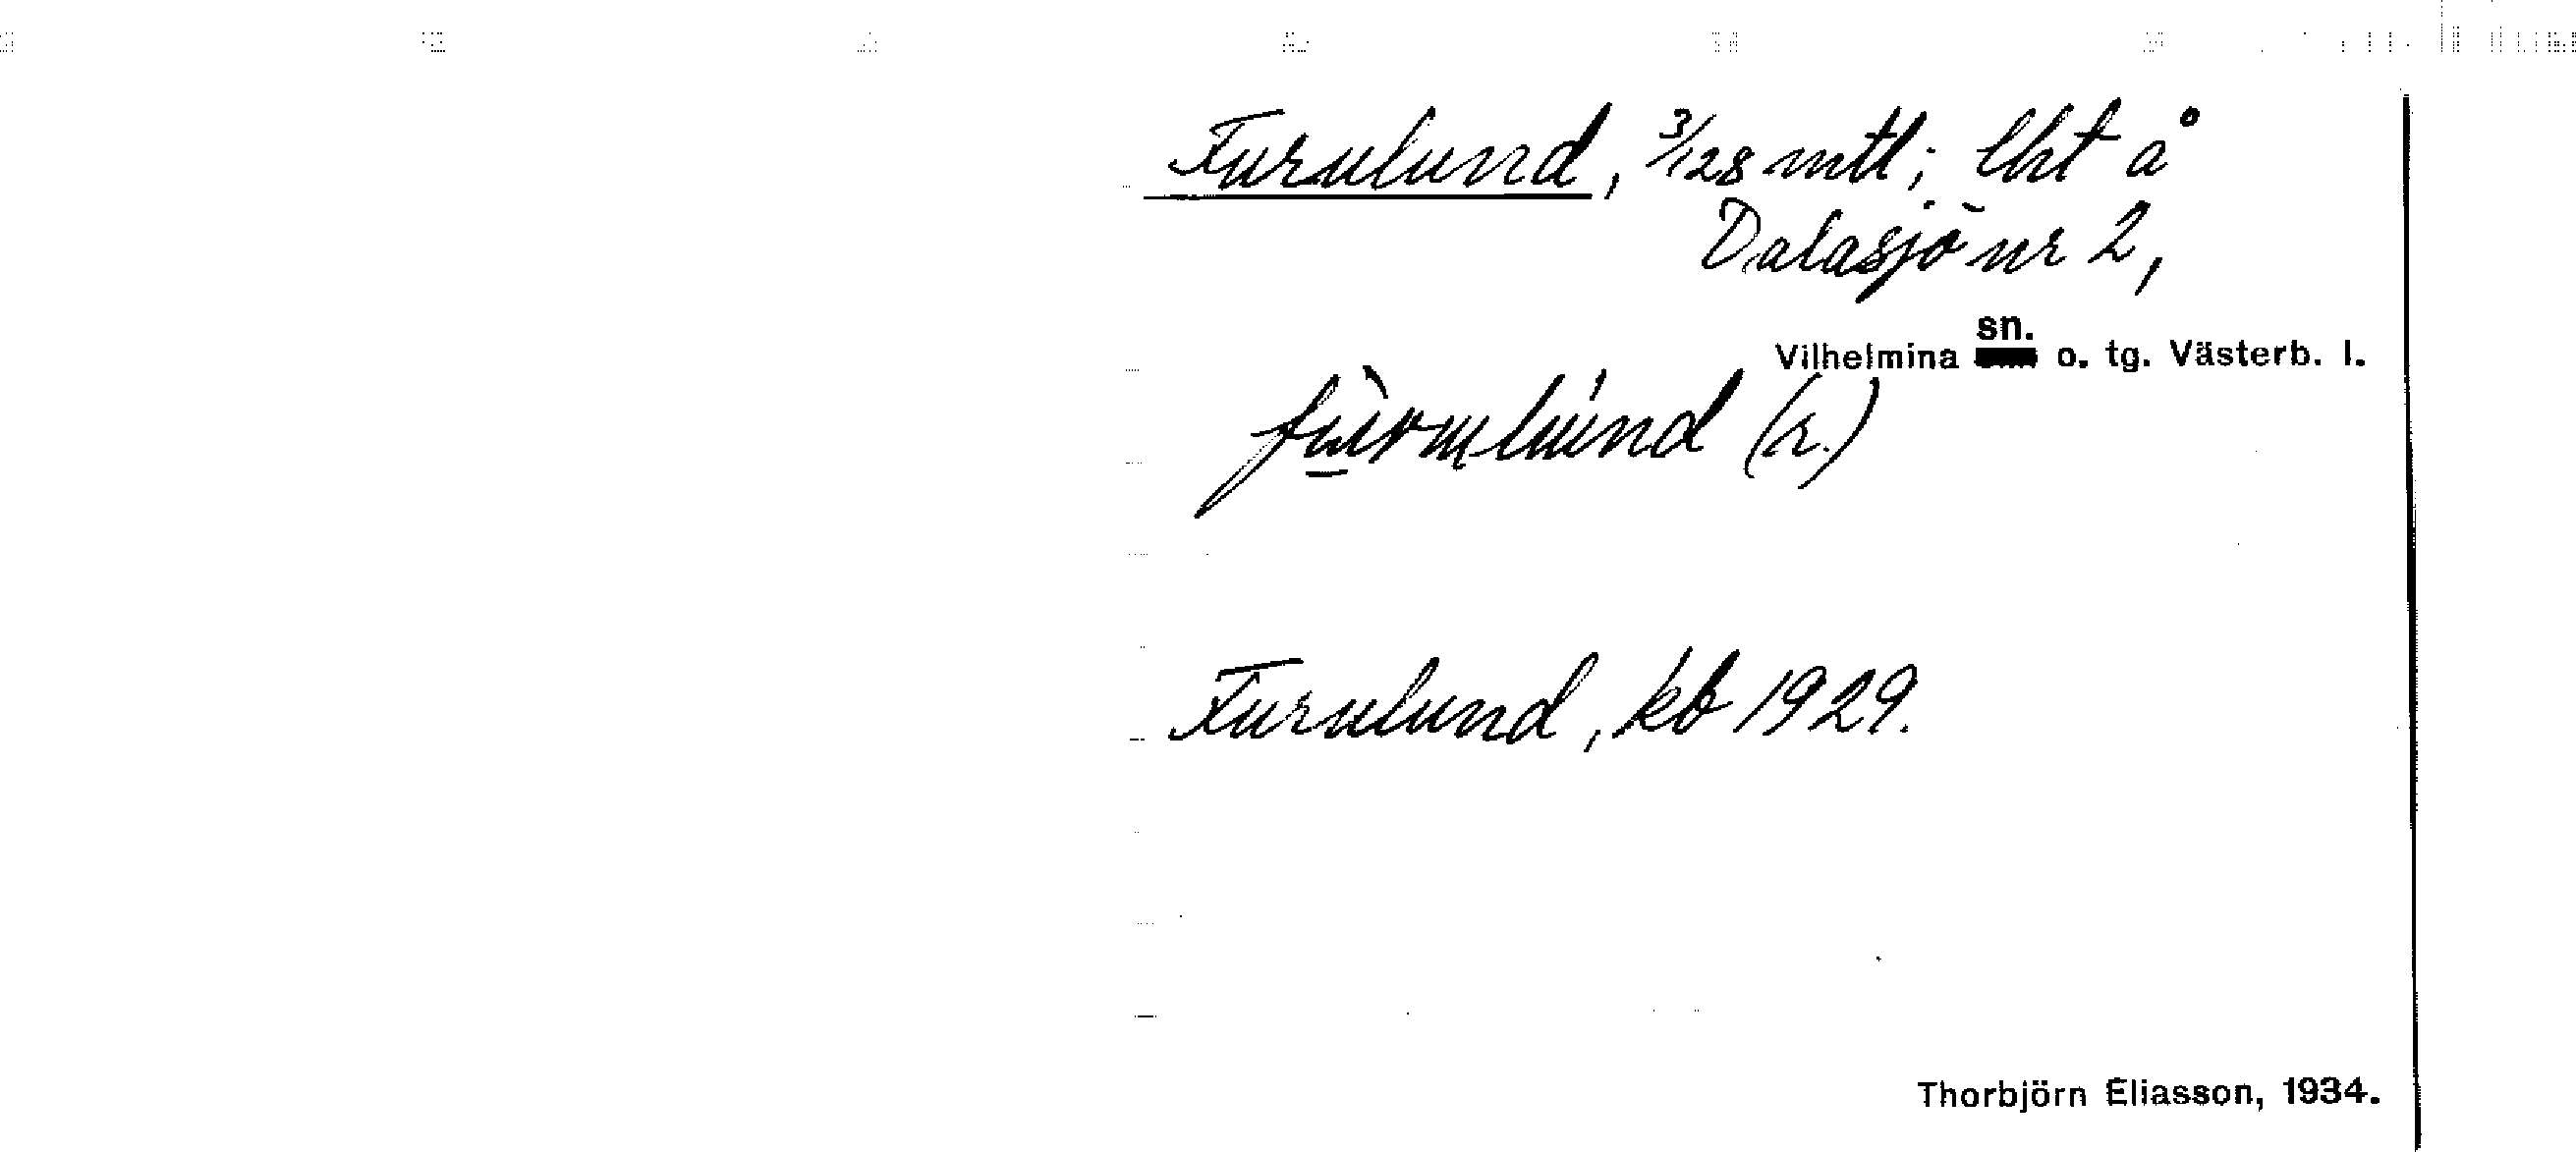 Furulund, 3/128 mtl; lht å
Dalasjö nr 2,
Vilhelmina sn. o. tg. Västerb. l.
(r.)
Furulund, kb 1929.
Thorbjörn Eliasson, 1934.